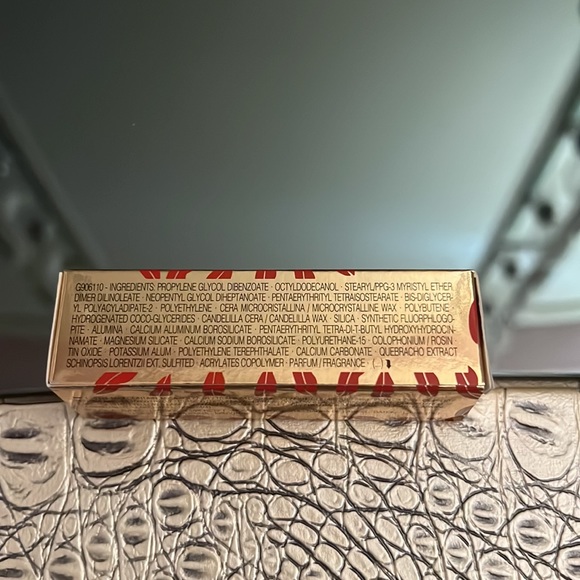 G906110 - INGREDIENTS: PROPYLENE GLYCOL DIBENZOATE · OCTYLDODECANOL · STEARYL/PPG-3 MYRISTYL ETHER
DIMER DILINOLEATE · NEOPENTYL GLYCOL DIHEPTANOATE · PENTAERYTHRITYL TETRAISOSTEARATE · BIS-DIGLYCER-
YL POLYACYLADIPATE-2 · POLYETHYLENE · CERA MICROCRISTALLINA / MICROCRYSTALLINE WAX · POLYBUTENE ·
HYDROGENATED COCO-GLYCERIDES · CANDELILLA CERA / CANDELILLA WAX · SILICA · SYNTHETIC FLUORPHLOGO-
PITE · ALUMINA · CALCIUM ALUMINUM BOROSILICATE · PENTAERYTHRITYL TETRA-DI-T-BUTYL HYDROXYHYDROCIN-
NAMATE · MAGNESIUM SILICATE · CALCIUM SODIUM BOROSILICATE · POLYURETHANE-15 · COLOPHONIUM / ROSIN ·
TIN OXIDE · POTASSIUM ALUM · POLYETHYLENE TEREPHTHALATE · CALCIUM CARBONATE · QUEBRACHO EXTRACT
SCHINOPSIS LORENTZII EXT. SULFITED · ACRYLATES COPOLYMER · PARFUM / FRAGRANCE